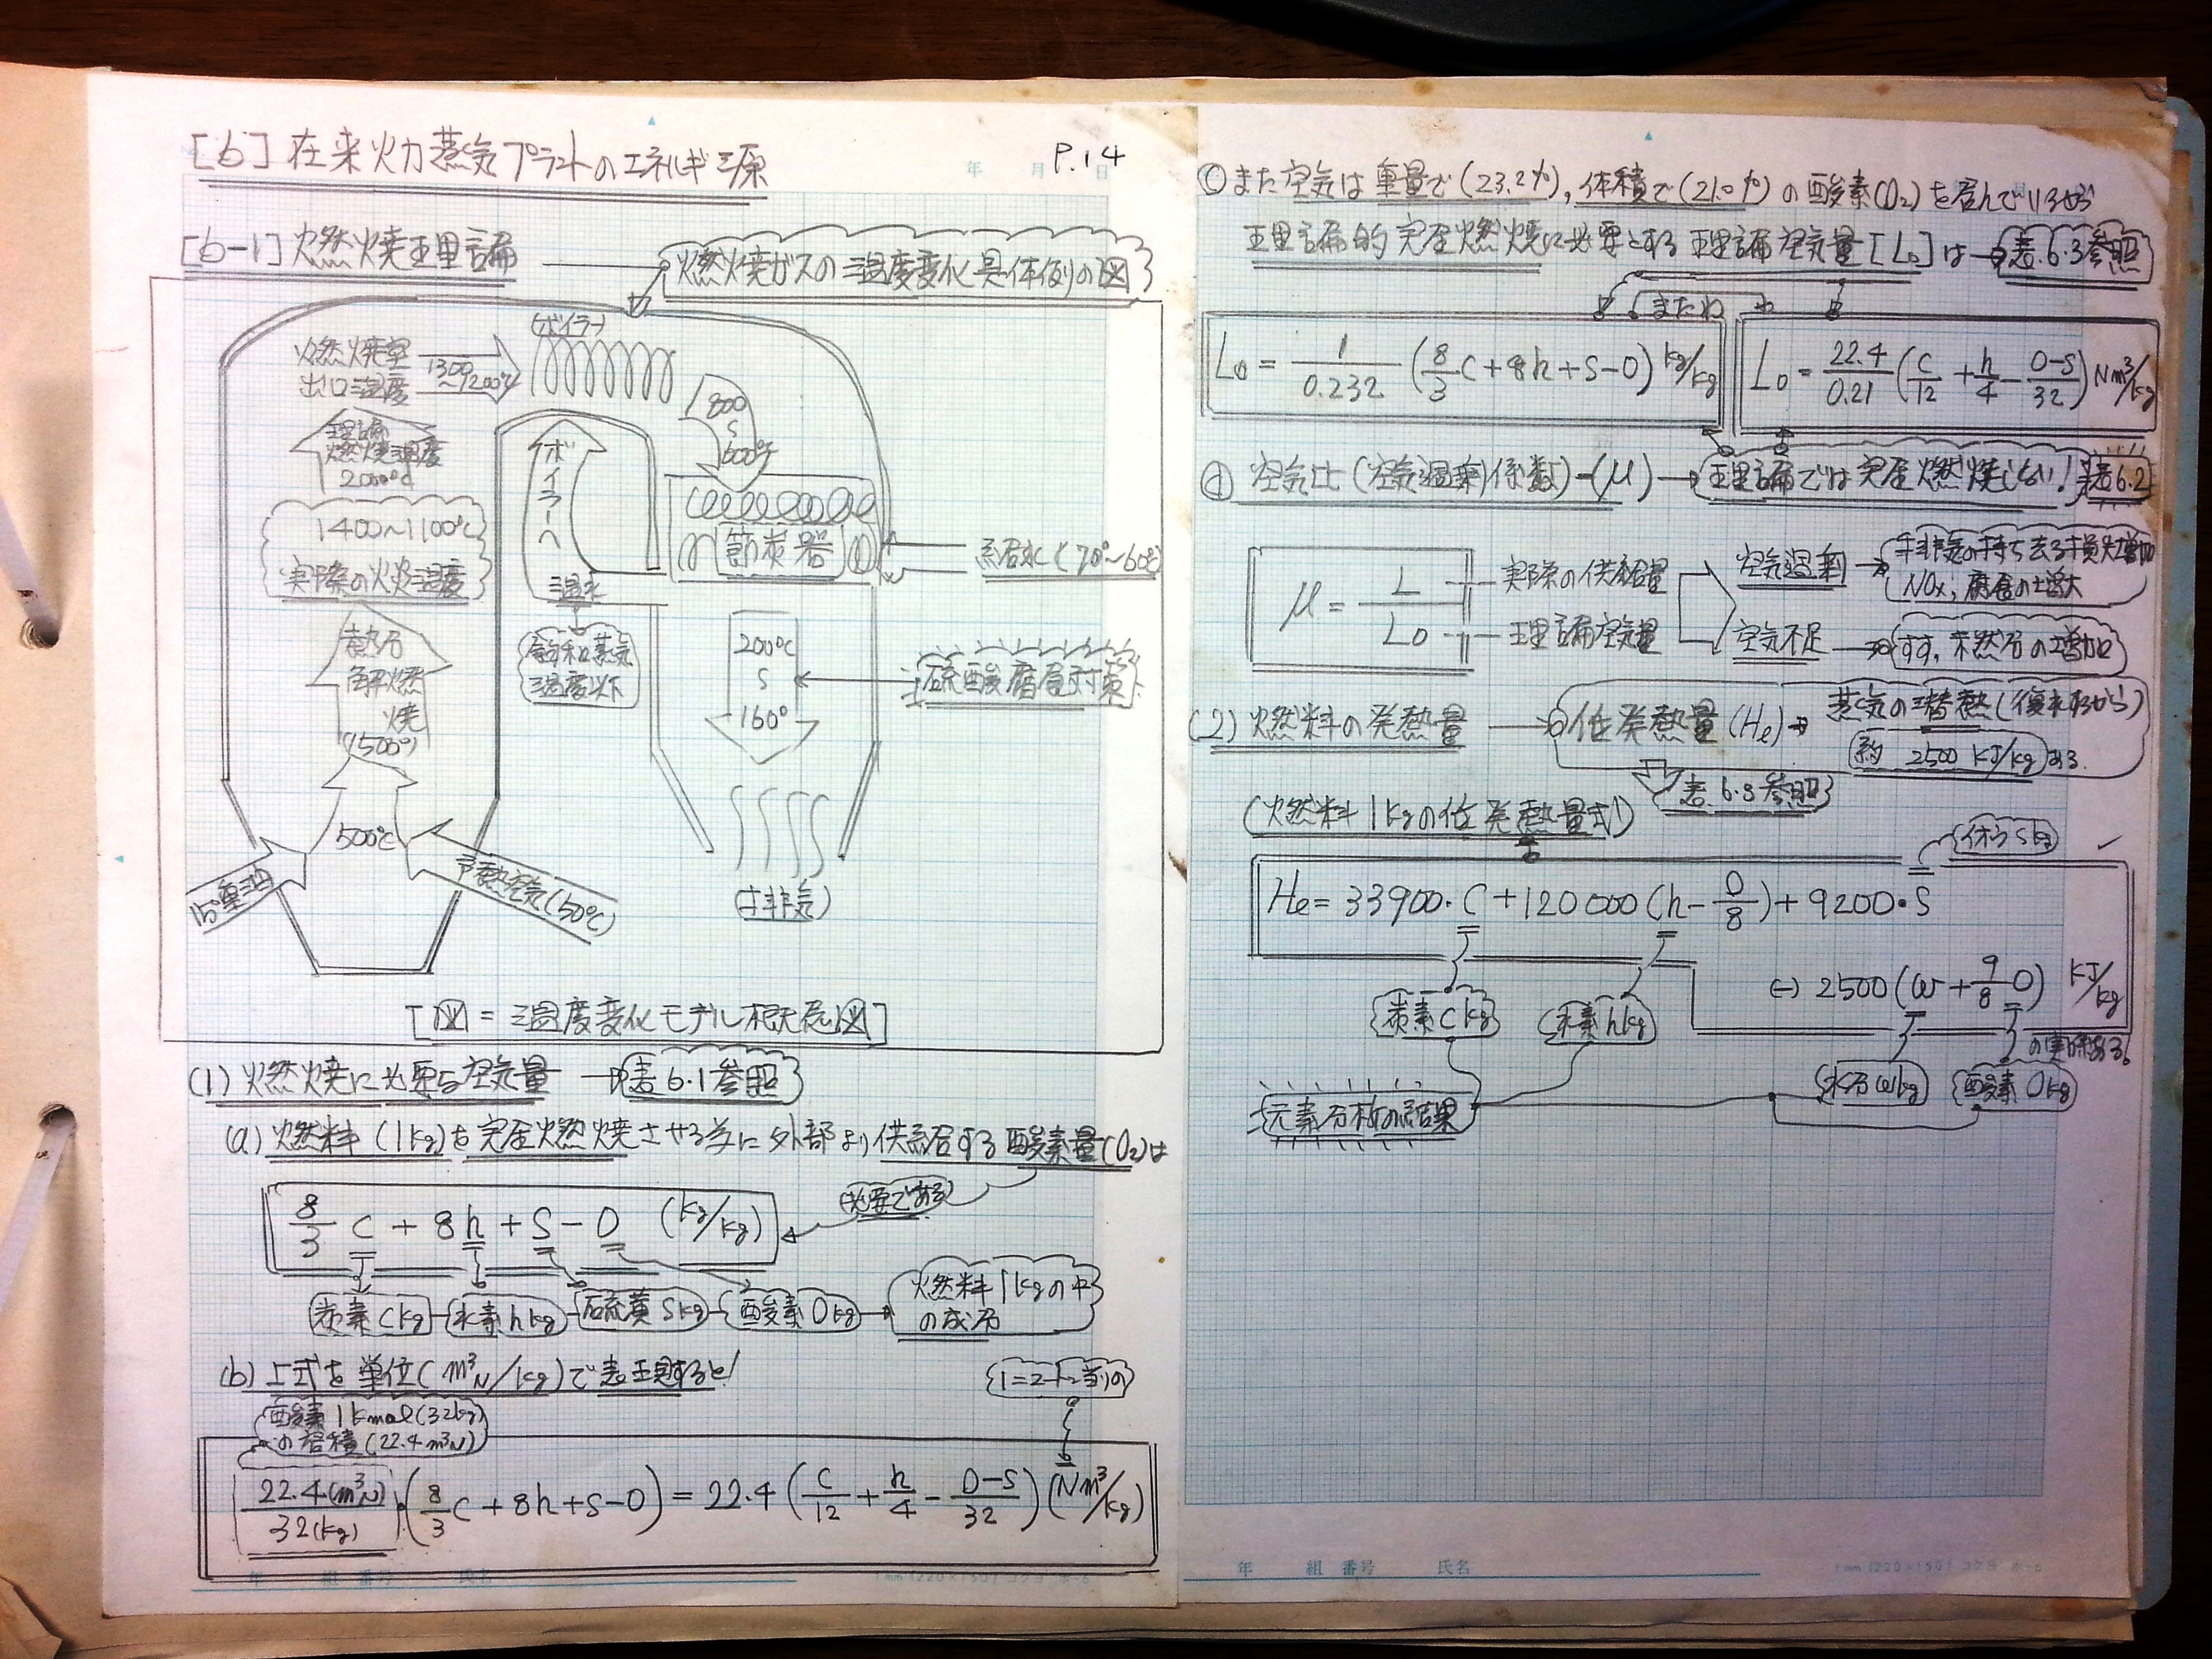 [6] 在来火力蒸気プラントのエネルギ源
P.14
年 月 日
[6-1] 燃焼理論
燃焼ガスの温度変化具体例の図
(ボイラー)
燃焼室
出口温度
1300~1200℃
800
600℃
理論
燃焼温度
2000℃
ボイラーへ
1400~1100℃
実際の火炎温度
節炭器
給水(70°~60℃)
温水
飽和蒸気
温度以下
熱分
解燃
焼
(1500°)
200℃
160°
硫酸腐食対策
500℃
15°重油
予熱空気(150℃)
(排気)
[図=温度変化モデル概念図]
(1) 燃焼に必要な空気量 → 表6.1参照
(a) 燃料(1kg)を完全燃焼させる為に外部より供給する酸素量(O₂)は
(必要である)
8/3 C + 8h + S - O (kg/kg)
炭素Ckg 水素hkg 硫黄Skg 酸素Okg → 燃料1kgの中
の成分
(b) 上式を単位(m³N/kg)で表現すると!
酸素1kmol(32kg)
の容積(22.4m³N)
22.4(m³N)/32(kg) · (8/3 C + 8h + S - O) = 22.4 (C/12 + h/4 - O-S/32) (Nm³/kg)
年 組 番号 氏名
ⓒ また空気は重量で(23.2%), 体積で(21.0%)の酸素(O₂)を含んでいるから
理論的完全燃焼に必要とする理論空気量[L₀]は → 表.6.3参照
または
L₀ = 1/0.232 (8/3 C + 8h + S - O) kg/kg
L₀ = 22.4/0.21 (C/12 + h/4 - O-S/32) Nm³/kg
ⓓ 空気比(空気過剰係数)-(μ) → 理論では完全燃焼しない! 表6.2
μ = L/L₀
実際の供給量
理論空気量
空気過剰 → 排気の持ち去る損失増加
NOx, 腐食の増大
空気不足 → すす, 未燃分の増加
(2) 燃料の発熱量 → 低発熱量(Hℓ) → 蒸気の潜熱(復水器から)
約 2500 KJ/kgある.
表.6.3参照
(燃料1kgの低発熱量式!)
硫黄Skg
Hℓ = 33900·C + 120000 (h - O/8) + 9200·S
(-) 2500 (w + 9/8 O) KJ/kg
炭素Ckg 水素hkg
水分wkg 酸素Okg
元素分析の結果
年 組 番号 氏名
1mm(220×150) コクヨ ホ-6